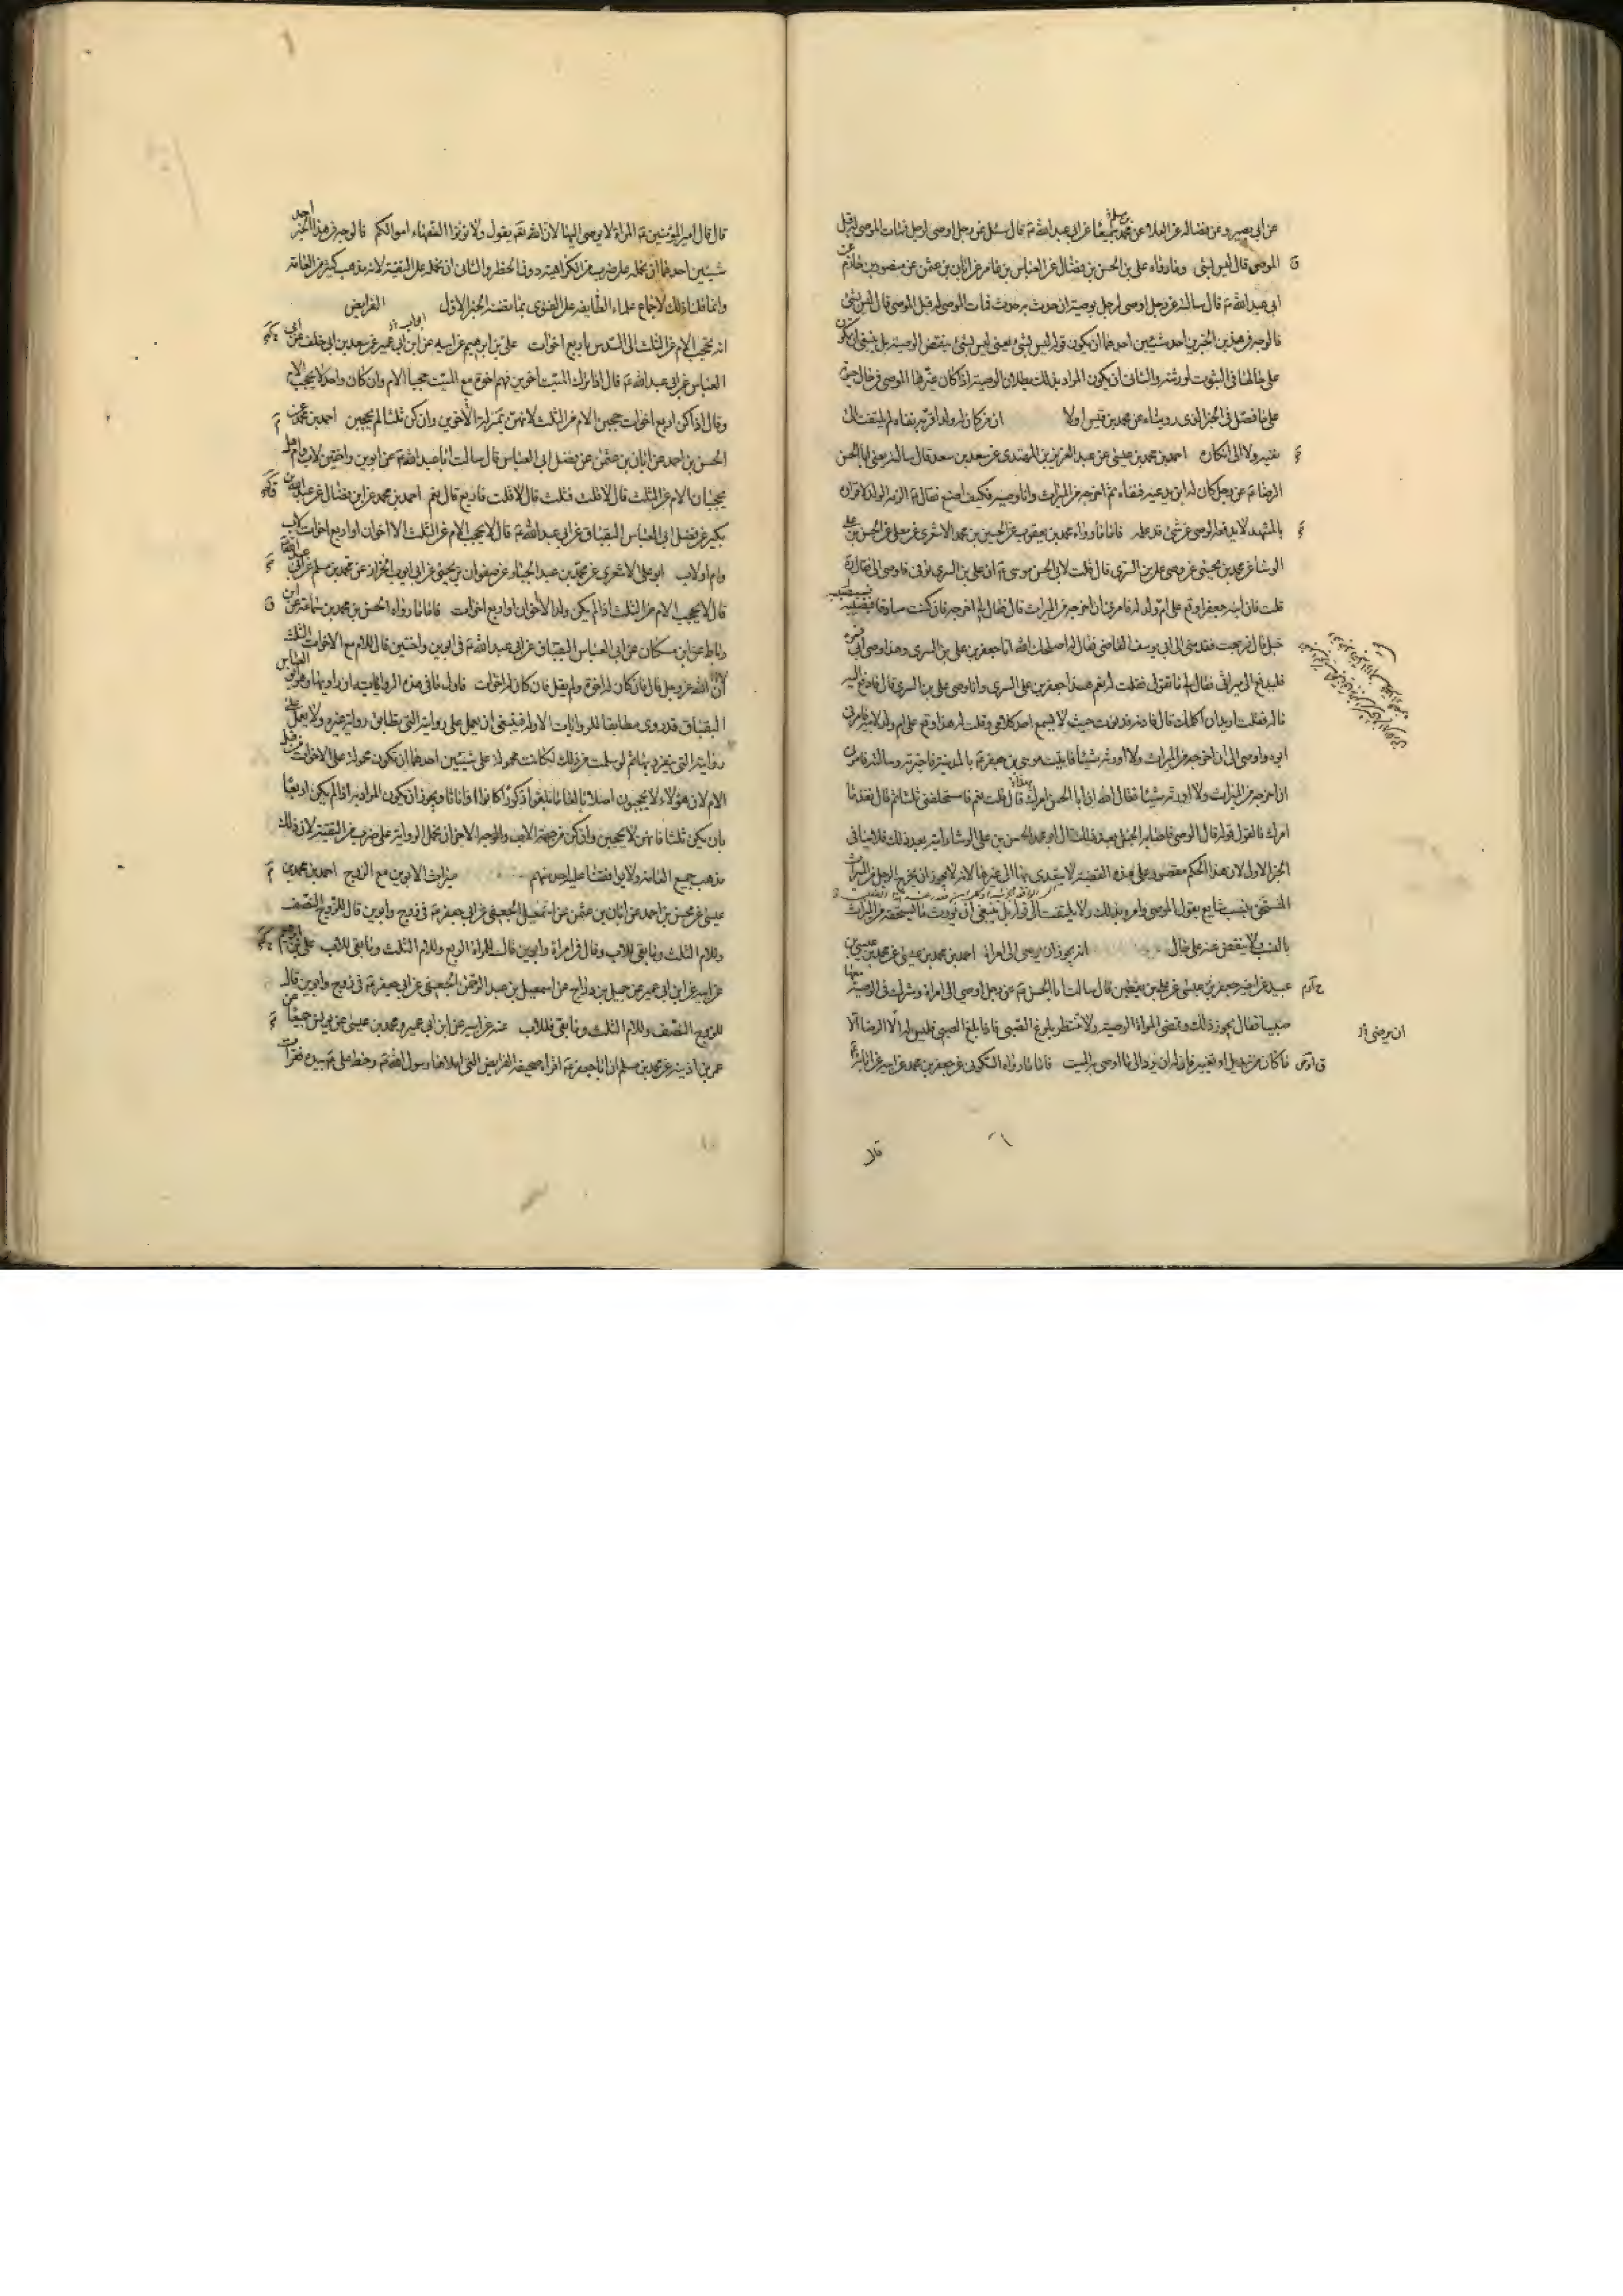 عن ابي بصير وعن فضاله عن العلا عن محمد بن مسلم جميعا عن ابي عبد الله ع قال سئل عن رجل اوصى لرجل فمات الموصى له قبل
الموصى قال ليس بشئ وما رواه علي بن الحسن بن فضال عن العباس بن عامر عن ابان بن عثمن عن منصور بن حازم عن
ابي عبد الله ع قال سالته عن رجل اوصى لرجل بوصية ان حدث به حدث فمات الموصى له قبل الموصى قال ليس بشئ
فالوجه في هذين الخبرين احد شيئين احدهما ان يكون قوله ليس بشئ يعني ليس بشئ ينقض الوصية بل ينبغي ان يكون
على حالها في الثبوت لورثته والثاني ان يكون المراد بذلك بطلان الوصية اذا كان غيرها الموصى في حال حيوته
على ما فصل في الخبر الذي رويناه عن محمد بن قيس اولا ان من كان له ولد اقر به ثم نفاه لم يلتفت الى
نفيه ولا الى انكاره احمد بن محمد بن عيسى عن عبد العزيز بن المهتدى عن سعد بن سعد قال سالته يعني ابا الحسن
الرضا ع عن رجل كان له ابن يدعيه فنفاه ثم اخرجه من الميراث وانا وصيه فكيف اصنع فقال ع لزمه الولد لاقراره
بالمشهد لا يدفعه الوصى عن شئ قد علمه فاما ما رواه محمد بن يعقوب عن الحسين بن محمد الاشعري عن معلى عن الحسن بن علي
الوشا عن محمد بن يحيى عن وصى علي بن السري قال قلت لابي الحسن موسى ع ان علي بن السري توفى فاوصى الى فقال ره
قلت فان ابنه جعفرا وقع على ام ولد له فامرني ان اخرجه من الميراث قال فقال لي اخرجه فان كنت صادقا فسيصيبه
خبل قال فرجعت فقدمني الى ابي يوسف القاضي فقال له اصلحك الله انا جعفر بن علي بن السري وهذا وصى ابي فمره
فليدفع الى ميراثي فقال لي ما تقول فقلت له نعم هذا جعفر بن علي السري وانا وصى علي بن السري قال فادفع اليه
ماله فقلت اريد ان اكلمك قال فادنه فدنوت حيث لا يسمع احد كلامي وقلت له هذا وقع على ام ولد لابيه فامرني
ابوه واوصى الى ان اخرجه من الميراث ولا اورثه شيئا فاتيت موسى بن جعفر ع بالمدينة فاخبرته وسالته فامرني
ان اخرجه من الميراث ولا اورثه شيئا فقال الله ان ابا الحسن امرك قال قلت نعم فاستحلفني ثلثا ثم قال انفذ ما
امرك فالقول قوله قال الوصى فاصابه الخبل بعد ذلك قال ابو محمد الحسن بن علي الوشا رايته بعد ذلك فلا ينافي
الخبر الاول لان هذا الحكم مقصور على هذه القضية لا يتعدى بها الى غيرها لانه لا يجوز ان يخرج الرجل من الميراث
المستحق بنسب شايع بقول الموصى وامره بذلك ولا يلتفت الى قوله بل ينبغي ان يورث ما يستحقه من الميراث
بالنسب ولا ينقض عنه على حال انه يجوز ان يوصى الى امراة احمد بن محمد بن عيسى عن محمد بن عيسى بن
عبيد عن اخيه جعفر بن عيسى عن علي بن يقطين قال سالت ابا الحسن ع عن رجل اوصى الى امراة وشرك في الوصية معها
صبيا فقال يجوز ذلك وتمضى المراة الوصية ولا تنتظر بلوغ الصبي فاذا بلغ الصبي فليس له الا الرضا الا
ان يرضى
ما كان من تبديل او تغيير فان له ان يرده الى ما اوصى به الميت فاما ما رواه السكوني عن جعفر بن محمد عن ابيه عن ابائه ع
قال
قال قال امير المؤمنين ع المراة لا يوصى اليها لان الله تع يقول ولا تؤتوا السفهاء اموالكم فالوجه في هذا الخبر احد
شيئين احدهما ان نحمله على ضرب من الكراهية دون الحظر والثاني ان نحمله على التقية لانه مذهب كثير من العامة
وانما قلنا ذلك لاجماع علماء الطايفة على الفتوى بما تضمنه الخبر الاول الفرايض ابواب
انه يحجب الام عن الثلث الى السدس باربع اخوات علي بن ابرهيم عن ابيه عن ابن ابي عمير عن سعد بن ابي خلف عن ابي
العباس عن ابي عبد الله ع قال اذا ترك الميت اخوين فهم اخوة مع الميت حجبا الام وان كان واحد لا يحجب الام
وقال اذا كن اربع اخوات حجبن الام من الثلث لانهن بمنزلة الاخوين وان كن ثلثا لم يحجبن احمد بن محمد عن
الحسن بن احمد عن ابان بن عثمن عن فضل ابي العباس قال سالت ابا عبد الله ع عن ابوين واختين لاب وام هل
يحجبان الام عن الثلث قال لا قلت فثلث قال لا قلت فاربع قال نعم احمد بن محمد عن ابن فضال عن عبد الله بن
بكير عن فضل ابي العباس البقباق عن ابي عبد الله ع قال لا يحجب الام عن الثلث الا اخوان او اربع اخوات لاب
وام او لاب ابو علي الاشعري عن محمد بن عبد الجبار عن صفوان بن يحيى عن ابي ايوب الخزاز عن محمد بن مسلم عن ابي عبد الله ع
قال لا يحجب الام من الثلث اذا لم يكن ولد الا اخوان او اربع اخوات فاما ما رواه الحسن بن محمد بن سماعة عن ابن
رباط عن ابن مسكان عن ابي العباس البقباق عن ابي عبد الله ع في ابوين واختين قال للام مع الاخوات الثلث
ان الله عز وجل قال فان كان له اخوة ولم يقل فان كان له اخوات فاول ما في هذه الروايات ان راويها وهو ابو العباس
البقباق قد روى مطابقا للروايات الاولة فينبغي ان يعمل على روايته التي تطابق رواية غيره ولا يعمل على
روايته التي ينفرد بها ثم لو سلمت من ذلك لكانت محمولة على شيئين احدهما ان تكون محمولة على الاخوات من قبل
الام لان هؤلاء لا يحجبون اصلا بالغا ما بلغوا ذكورا كانوا او اناثا ويجوز ان يكون المراد به اذا لم يكن اربعا
بان يكن ثلثا فانهن لا يحجبن وان كن من جهة الاب والوجه الاخر ان نحمل الرواية على ضرب من التقية لان ذلك
مذهب جميع العامة ولا يوافقنا عليه احد منهم ميراث الابوين مع الزوج احمد بن محمد بن
عيسى عن محسن بن احمد عن ابان بن عثمن عن اسمعيل الجعفي عن ابي جعفر ع في زوج وابوين قال للزوج النصف
وللام الثلث وما بقى للاب وقال في امراة وابوين قال للمراة الربع وللام الثلث وما بقى للاب علي بن ابرهيم
عن ابيه عن ابن ابي عمير عن جميل بن دراج عن اسمعيل بن عبد الرحمن الجعفي عن ابي جعفر ع في زوج وابوين قال
للزوج النصف وللام الثلث وما بقى فللاب عنه عن ابيه عن ابن ابي عمير ومحمد بن عيسى عن يونس جميعا عن
عمر بن اذينه عن محمد بن مسلم ان ابا جعفر ع اقراه صحيفة الفرايض التي املاها رسول الله ص وخط علي ع بيده فقرات